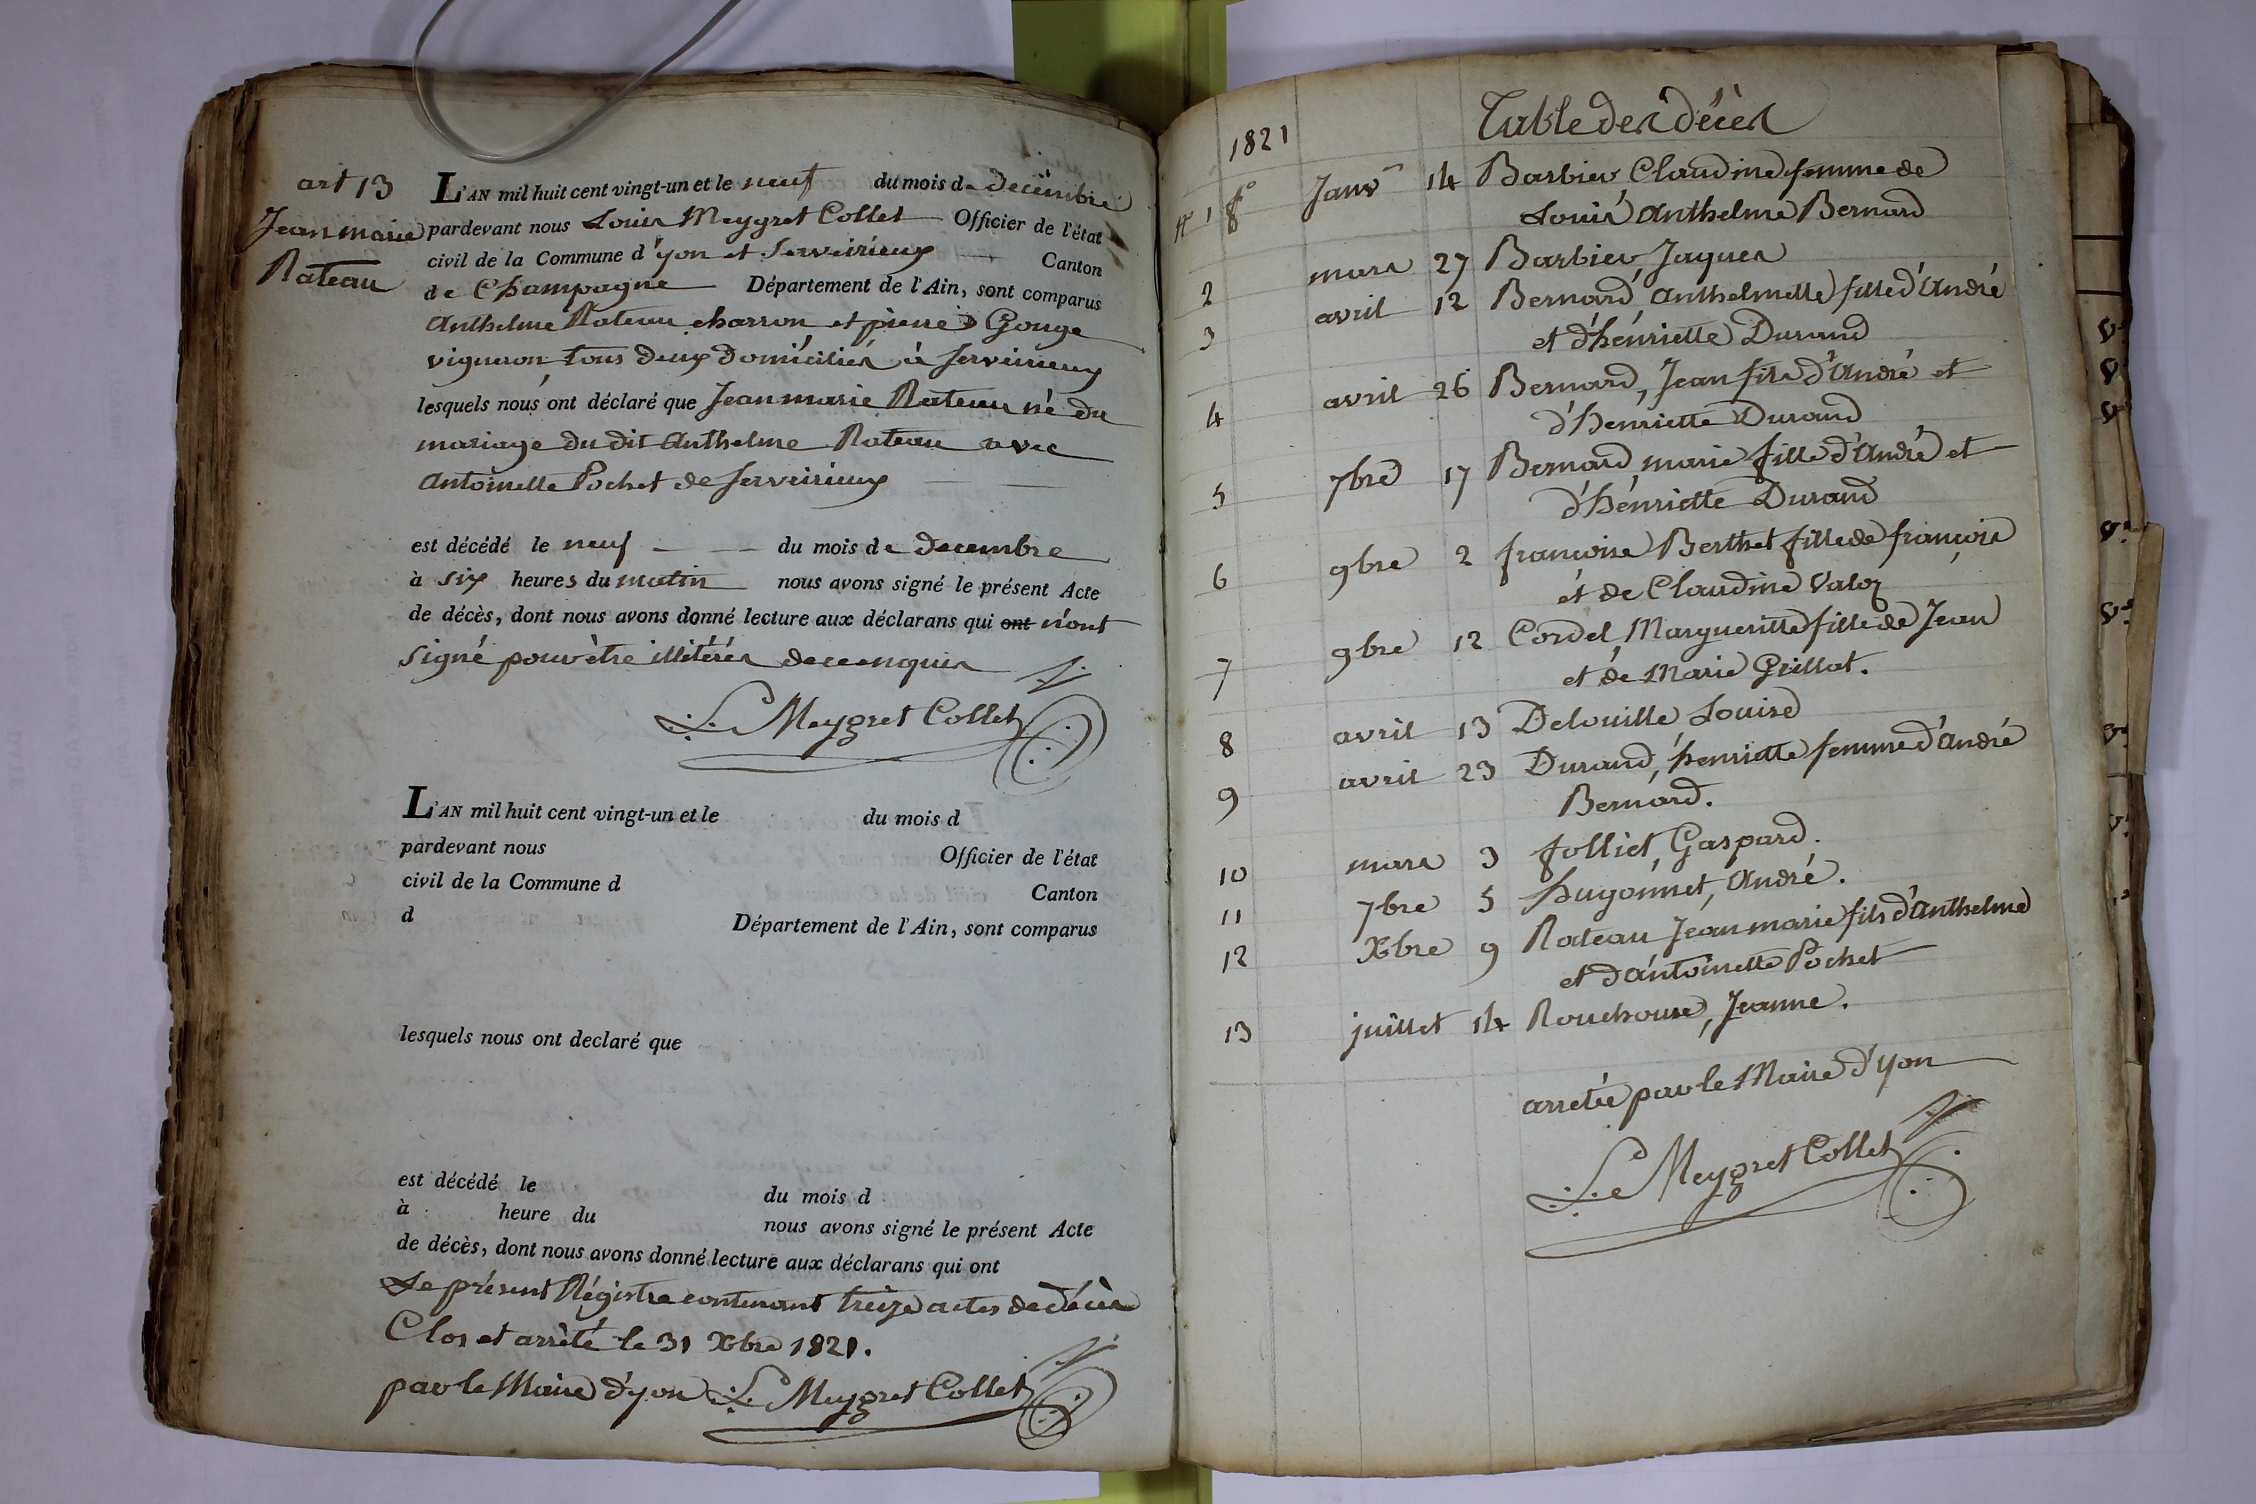 art 13
Jeanmarie
Rateau
L'AN mil huit cent vingt-un et le neuf du mois de decembre
pardevant nous Louis Meygret Collet Officier de l'état
civil de la Commune d'yon et Serveirieux Canton
de Champagne Département de l'Ain, sont comparus
Anthelme Rateau charron et pierre Gouge
vigneron tous deux domiciliés à Serveirieux
lesquels nous ont déclaré que Jeanmarie Rateau né du
mariage du dit Anthelme Rateau avec
Antoinette Pochet de Serveirieux
est décédé le neuf du mois de decembre
à six heures du matin nous avons signé le présent Acte
de décès, dont nous avons donné lecture aux déclarans qui ont n'ont
signé pour être illitérés de ce enquis
L. Meygret Collet
L'AN mil huit cent vingt-un et le du mois d
pardevant nous Officier de l'état
civil de la Commune d Canton
d Département de l'Ain, sont comparus
lesquels nous ont declaré que
est décédé le du mois d
à heure du nous avons signé le présent Acte
de décès, dont nous avons donné lecture aux déclarans qui ont
Le présent Régistre contenant treize actes de décès
Clos et arrêté le 31 Xbre 1821.
par le Maire d'yon L. Meygret Collet
1821 Table des décès
1 Janv 14 Barbier Claudine femme de
Louis Anthelme Bernard
2 mars 27 Barbier Jaques
3 avril 12 Bernard Anthelmette fille d'André
et d'hénriette Durand
4 avril 26 Bernard, Jean fils d'André et
d'Henriette Durand
5 7bre 17 Bernard marie fille d'André et
d'hénriette Durand
6 9bre 2 françoise Berthet fille de françois
et de Claudine
7 9bre 12 Cordel, Margueritte fille de Jean
et de Marie Grillot.
8 avril 13 Delouille Louise
9 avril 23 Durand, henriette femme d'André
Bernard.
10 mars 3 folliet, Gaspard.
11 7bre 5 hugonnet, André.
12 Xbre 9 Rateau Jeanmarie fils d'Anthelme
et d'antoinette Pochet
13 juillet 14 Rouchouse, Jeanne.
arretée par le Maire d'yon
L. Meygret Collet